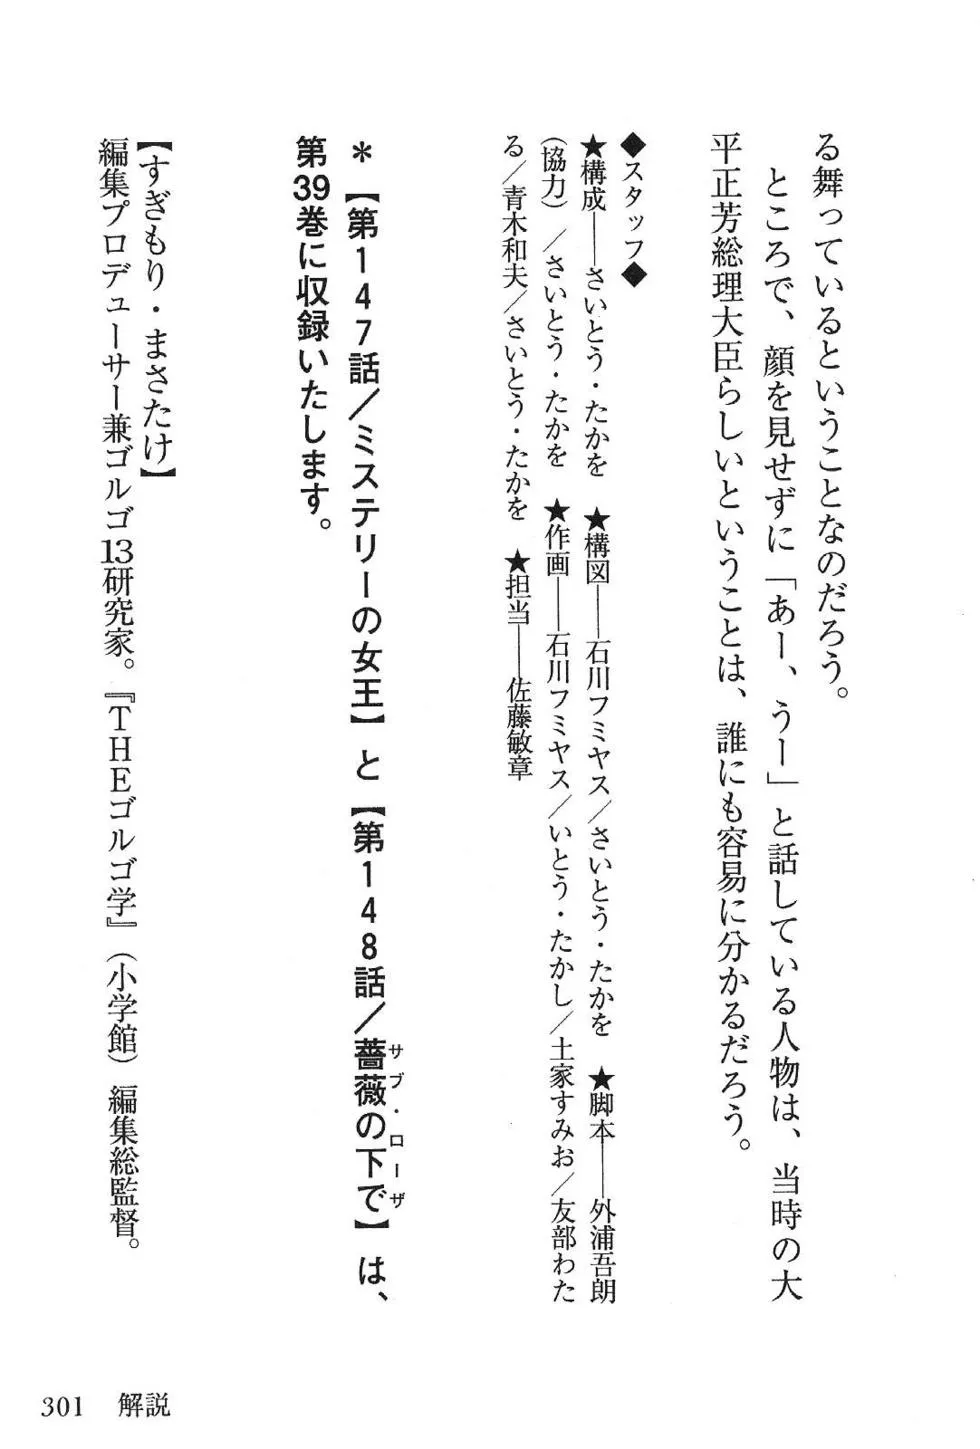 る舞っているということなのだろう。
ところで、顔を見せずに「あー、うー」と話している人物は、当時の大
平正芳総理大臣らしいということは、誰にも容易に分かるだろう。
◆スタッフ◆
★構成――さいとう・たかを　★構図――石川フミヤス／さいとう・たかを　★脚本――外浦吾朗
（協力）／さいとう・たかを　★作画――石川フミヤス／いとう・たかし／土家すみお／友部わた
る／青木和夫／さいとう・たかを　★担当――佐藤敏章
＊【第１４７話／ミステリーの女王】と【第１４８話／薔薇の下で】は、
サブ・ローザ
第39巻に収録いたします。
【すぎもり・まさたけ】
編集プロデューサー兼ゴルゴ13研究家。『ＴＨＥゴルゴ学』（小学館）編集総監督。
301　解説